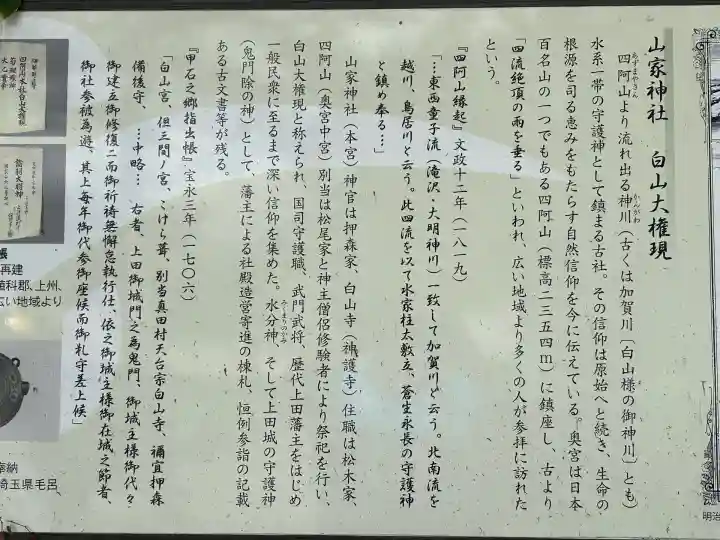 山家神社　白山大権現
四阿山より流れ出る神川（古くは加賀川〔白山様の御神川〕とも）
あずまやさん
かんがわ
水系一帯の守護神として鎮まる古社。その信仰は原始へと続き、生命の
根源を司る恵みをもたらす自然信仰を今に伝えている。奥宮は日本
百名山の一つでもある四阿山（標高二三五四ｍ）に鎮座し、古より
「四流絶頂の雨を垂る」といわれ、広い地域より多くの人が参拝に訪れた
という。
『四阿山縁起』文政十二年（一八一九）
「…東西童子流（滝沢・大明神川）一致して加賀川と云う。北南流を
越川、鳥居川と云う。此四流を以て水家柱太敷立、蒼生永長の守護神
と鎮め奉る…」
山家神社（本宮）神官は押森家、白山寺（神護寺）住職は松木家、
四阿山（奥宮中宮）別当は松尾家と神主僧侶修験者により祭祀を行い、
白山大権現と称えられ、国司守護職、武門武将、歴代上田藩主をはじめ
一般民衆に至るまで深い信仰を集めた。水分神、そして上田城の守護神
みくまりのかみ
（鬼門除の神）として、藩主による社殿造営寄進の棟札、恒例参詣の記載
ある古文書等が残る。
『甲石之郷指出帳』宝永三年（一七〇六）
「白山宮、但三間ノ宮、こけら葺、別当真田村天台宗白山寺、禰宜押森
備後守、…中略…　右者、上田御城門之為鬼門、御城主様御代々
御建立御修復ニ而御祈祷無懈怠執行仕、依之御城主様御在城之節者、
御社参被為遊、其上毎年御代参御座候而御札守差上候」
帳
再建
埴科郡、上州、
広い地域より
奉納
埼玉県毛呂
明治